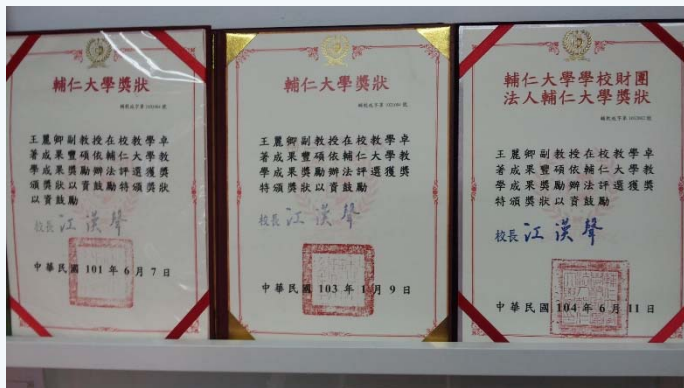 輔仁大學獎狀
王麗卿副教授在校教學卓
著成果豐碩依輔仁大學教
學成果獎勵辦法評選獲獎
特頒獎狀
以資鼓勵
校長 江漢聲
中華民國 101 年 6 月 7 日
輔仁大學獎狀
王麗卿副教授在校教學卓
著成果豐碩依輔仁大學教
學成果獎勵辦法評選獲獎
特頒獎狀以資鼓勵
校長 江漢聲
中華民國 103 年 1 月 9 日
輔仁大學學校財團
法人輔仁大學獎狀
王麗卿副教授在校教學卓
著成果豐碩依輔仁大學教
學成果獎勵辦法評選獲獎
特頒獎狀以資鼓勵
校長 江漢聲
中華民國 104 年 6 月 11 日